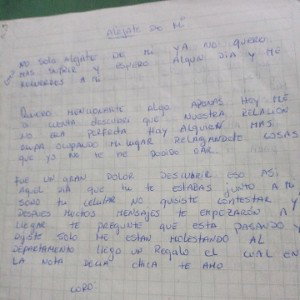 Alejate de mi
No solo alejate de mi ya no quiero
mas sufrir y espero algun dia y me
recuerdes a mi
Quiero mencionarte algo apenas hoy me
di cuenta descubri que nuestra relacion
no era perfecta hay alguien mas
ocupando mi lugar regalandote cosas
que yo no te he podido dar
Fue un gran dolor descubrir eso asi
aquel dia que tu te estabas junto a mi
sono tu celular no quisiste contestar y
despues muchos mensajes te empezaron a
llegar te pregunte que esta pasando y
dijiste solo me estan molestando al
departamento llego un regalo el cual en
la nota decia chica te amo
coro: